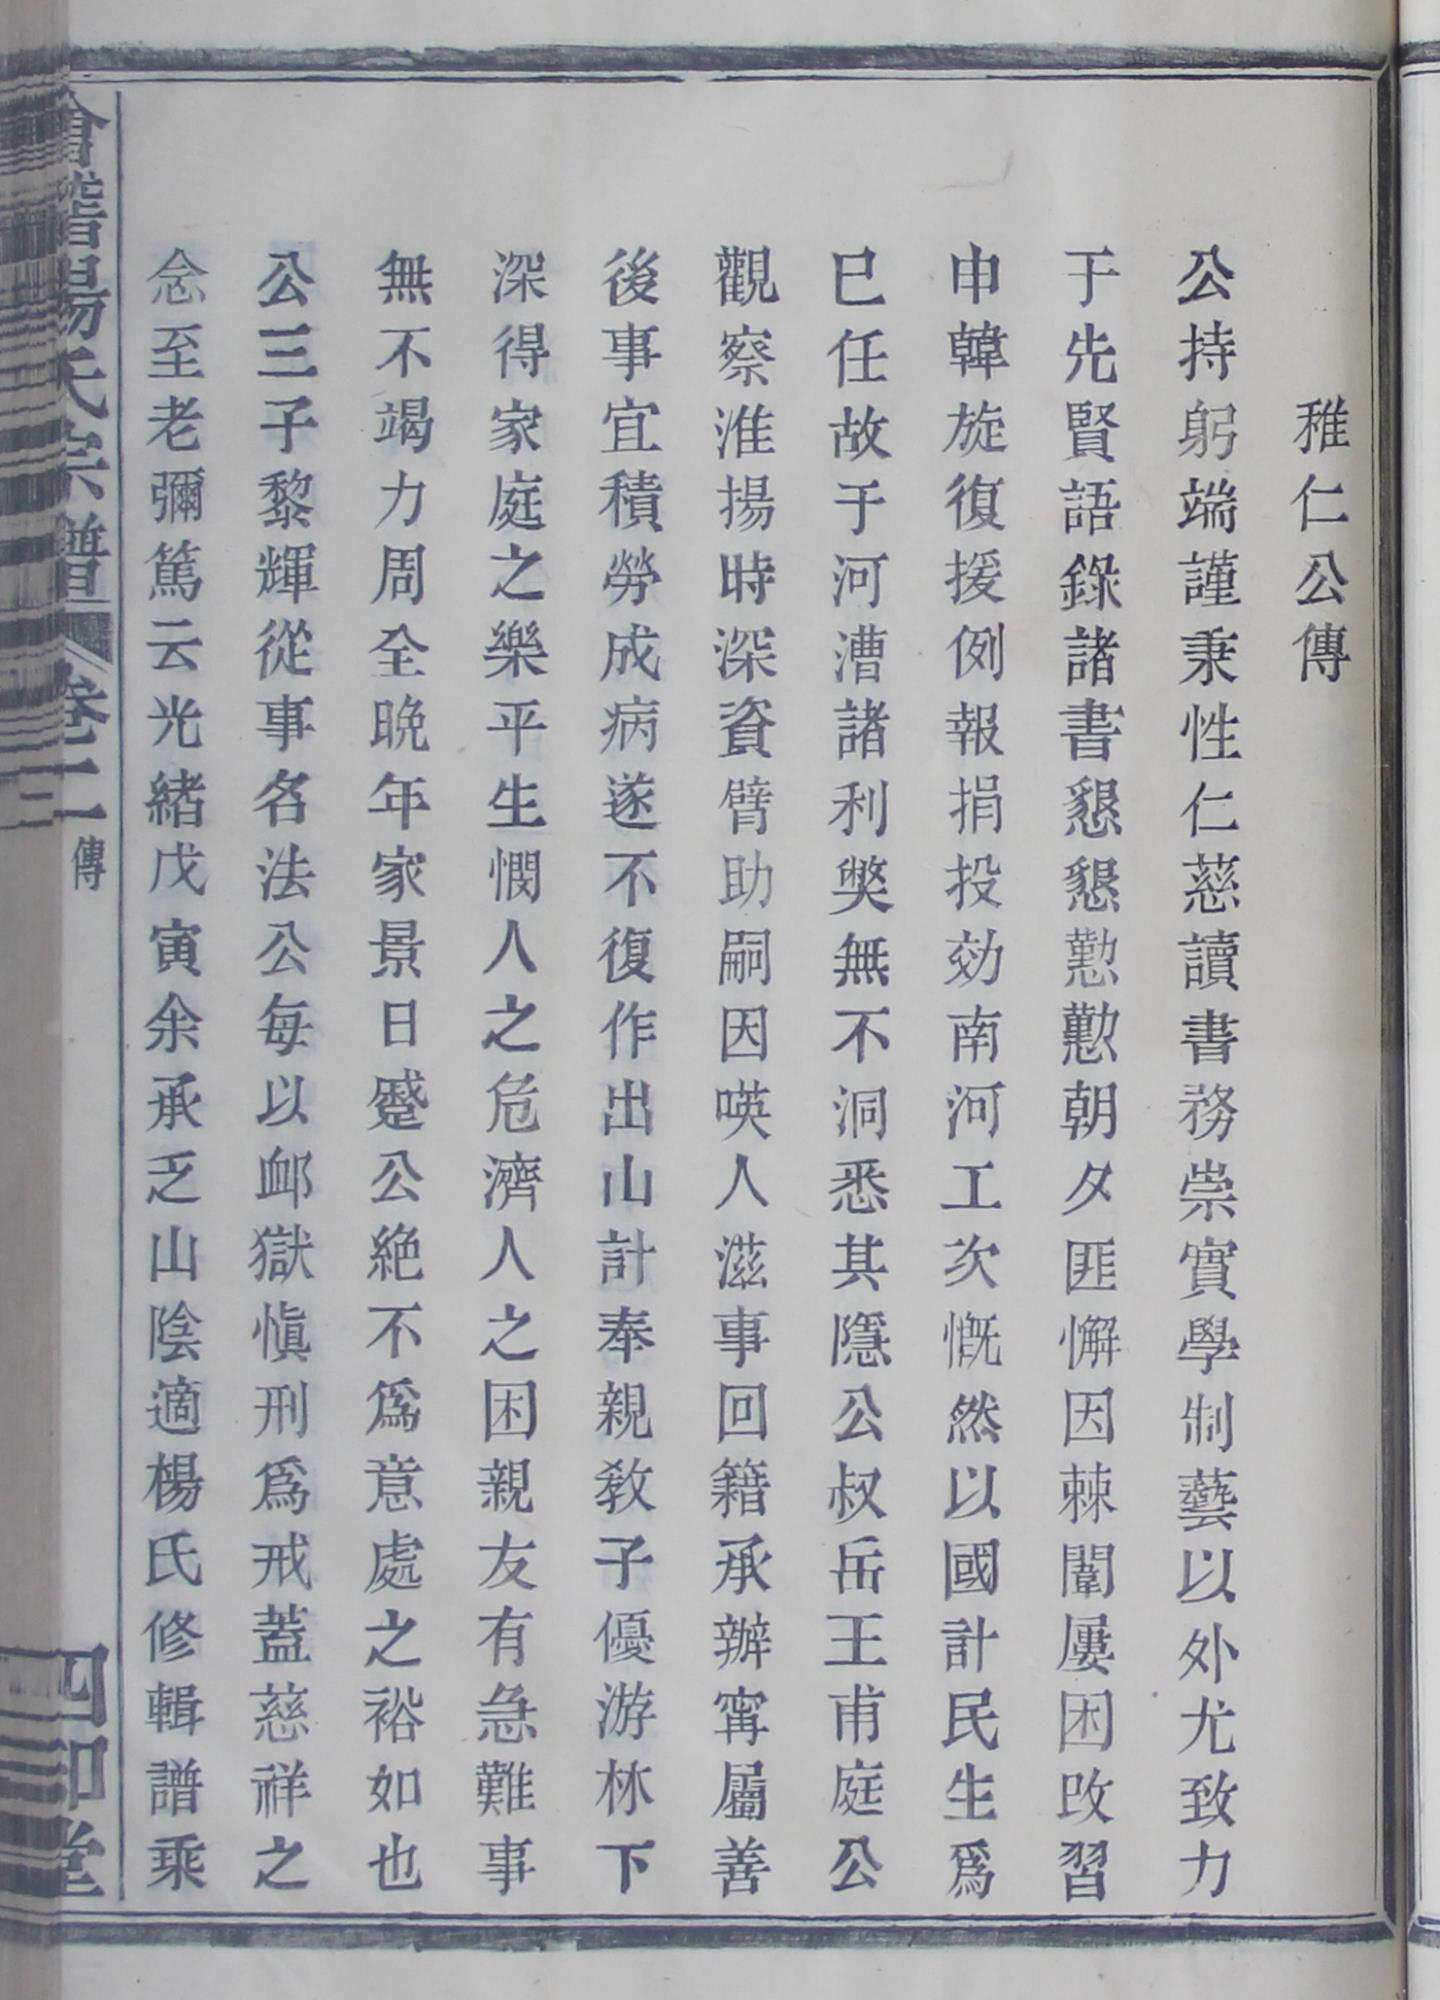 稚仁公傳
公持躬端謹秉性仁慈讀書務崇實學制藝以外尤致力
于先賢語錄諸書懇懇懃懃朝夕匪懈因棘闈屢困改習
申韓旋復援例報捐投効南河工次慨然以國計民生爲
已任故于河漕諸利獘無不洞悉其隱公叔岳王甫庭公
觀察淮揚時深資臂助嗣因㗸人滋事回籍承辦寗屬善
後事宜積勞成病遂不復作出山計奉親敎子優游林下
深得家庭之樂平生憫人之危濟人之困親友有急難事
無不竭力周全晚年家景日蹙公絶不爲意處之裕如也
公三子黎輝從事名法公每以卹獄愼刑爲戒蓋慈祥之
念至老彌篤云光緖戊寅余承乏山陰適楊氏修輯譜乘
會稽楊氏宗譜 卷二 傳 四知堂